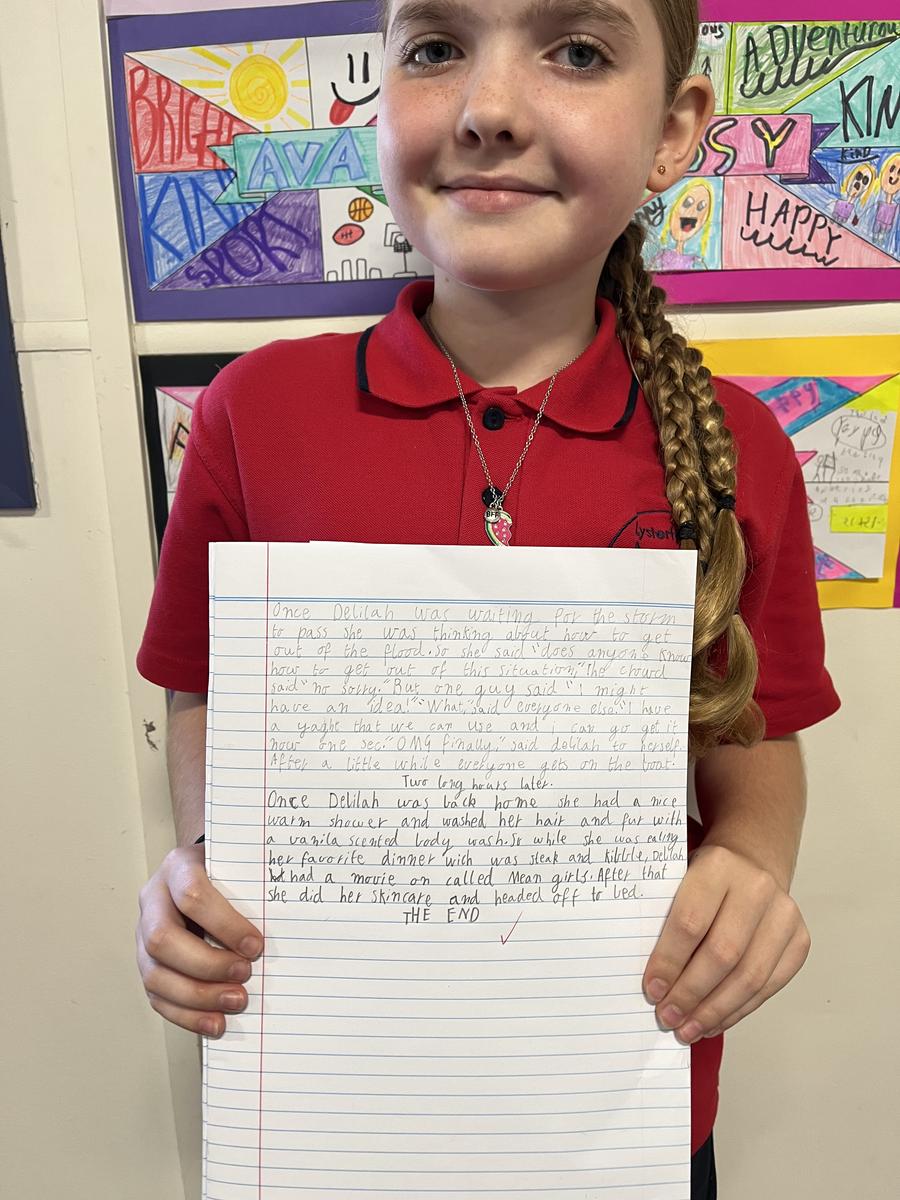 BRIGH
AVA
KIN
SPORT
ADVenturou
ous
SSY
KIN
KIND
HAPPY
BFF
Lyster
Once Delilah was waiting for the storm
to pass she was thinking about how to get
out of the flood. So she said "does anyone know
how to get out of this situation," the crowd
said "no sorry." But one guy said "I might
have an idea!" "What," said everyone else. "I have
a yaght that we can use and i can go get it
now one sec." "OMG finally," said delilah to herself.
After a little while everyone gets on the boat.
Two long hours later.
Once Delilah was back home she had a nice
warm shower and washed her hair and fur with
a vanila scented body wash. So while she was eating
her favorite dinner wich was steak and kibble, Delilah
had a movie on called Mean girls. After that
she did her skincare and headed off to bed.
THE END